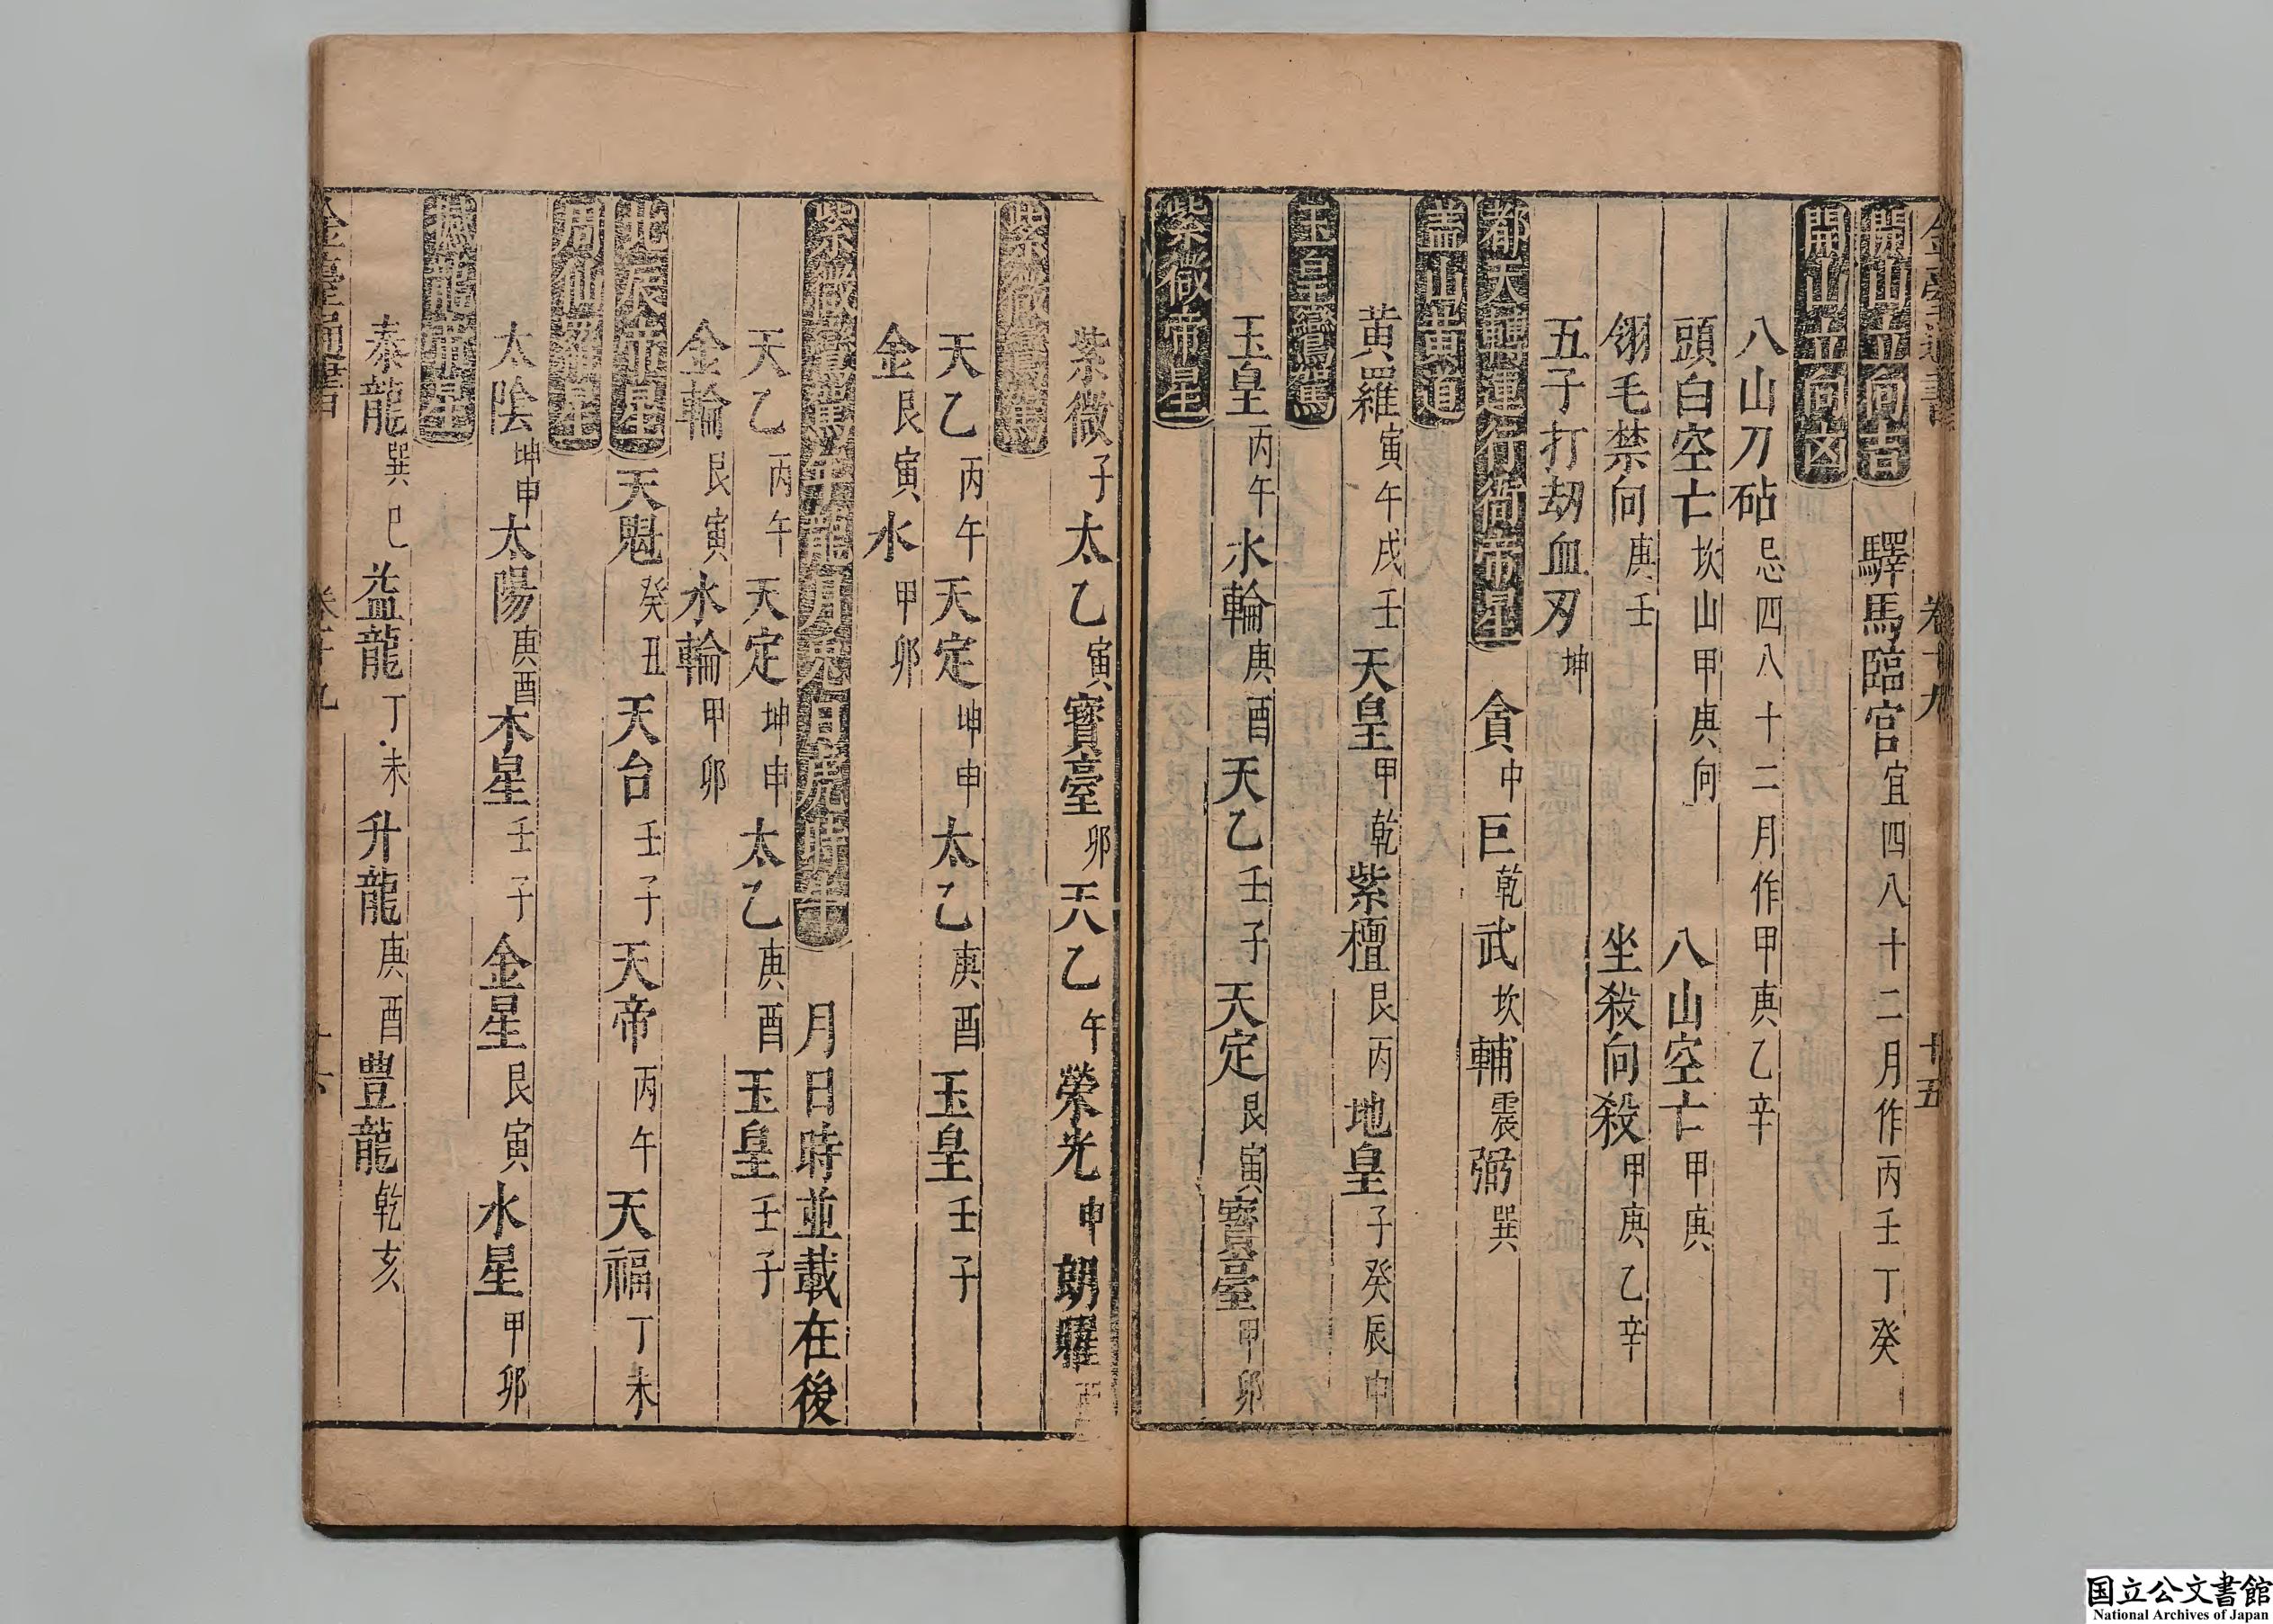 金臺通書 卷十九 十五
開山立向吉 驛馬臨官宜四八十二月作丙壬丁癸
開山立向凶
八山刀砧忌四八十二月作甲庚乙辛
頭白空亡坎山甲庚向 八山空亡甲庚
翎毛禁向庚壬 坐殺向殺甲庚乙辛
五子打劫血刃坤
都天轉運行衙帝星 貪中巨乾武坎輔震弼巽
蓋山黃道
黃羅寅午戌壬天皇甲乾紫檀艮丙地皇子癸辰申
玉皇鑾駕
玉皇丙午水輪庚酉天乙壬子天定艮寅寶臺甲卯
紫微帝星
紫微子太乙寅寶臺卯天乙午榮光申朗曜酉
紫微鑾駕
天乙丙午天定坤申太乙庚酉玉皇壬子
金艮寅水甲卯
紫微鑾駕 月日時並載在後
天乙丙午天定坤申太乙庚酉玉皇壬子
金輪艮寅水輪甲卯
北辰帝星 天魁癸丑天台壬子天帝丙午天福丁未
周仙羅星
太陰坤申太陽庚酉木星壬子金星艮寅水星甲卯
龍帝星
泰龍巽巳益龍丁未升龍庚酉豊龍乾亥
金臺通書 卷十九 十六
国立公文書館
National Archives of Japan